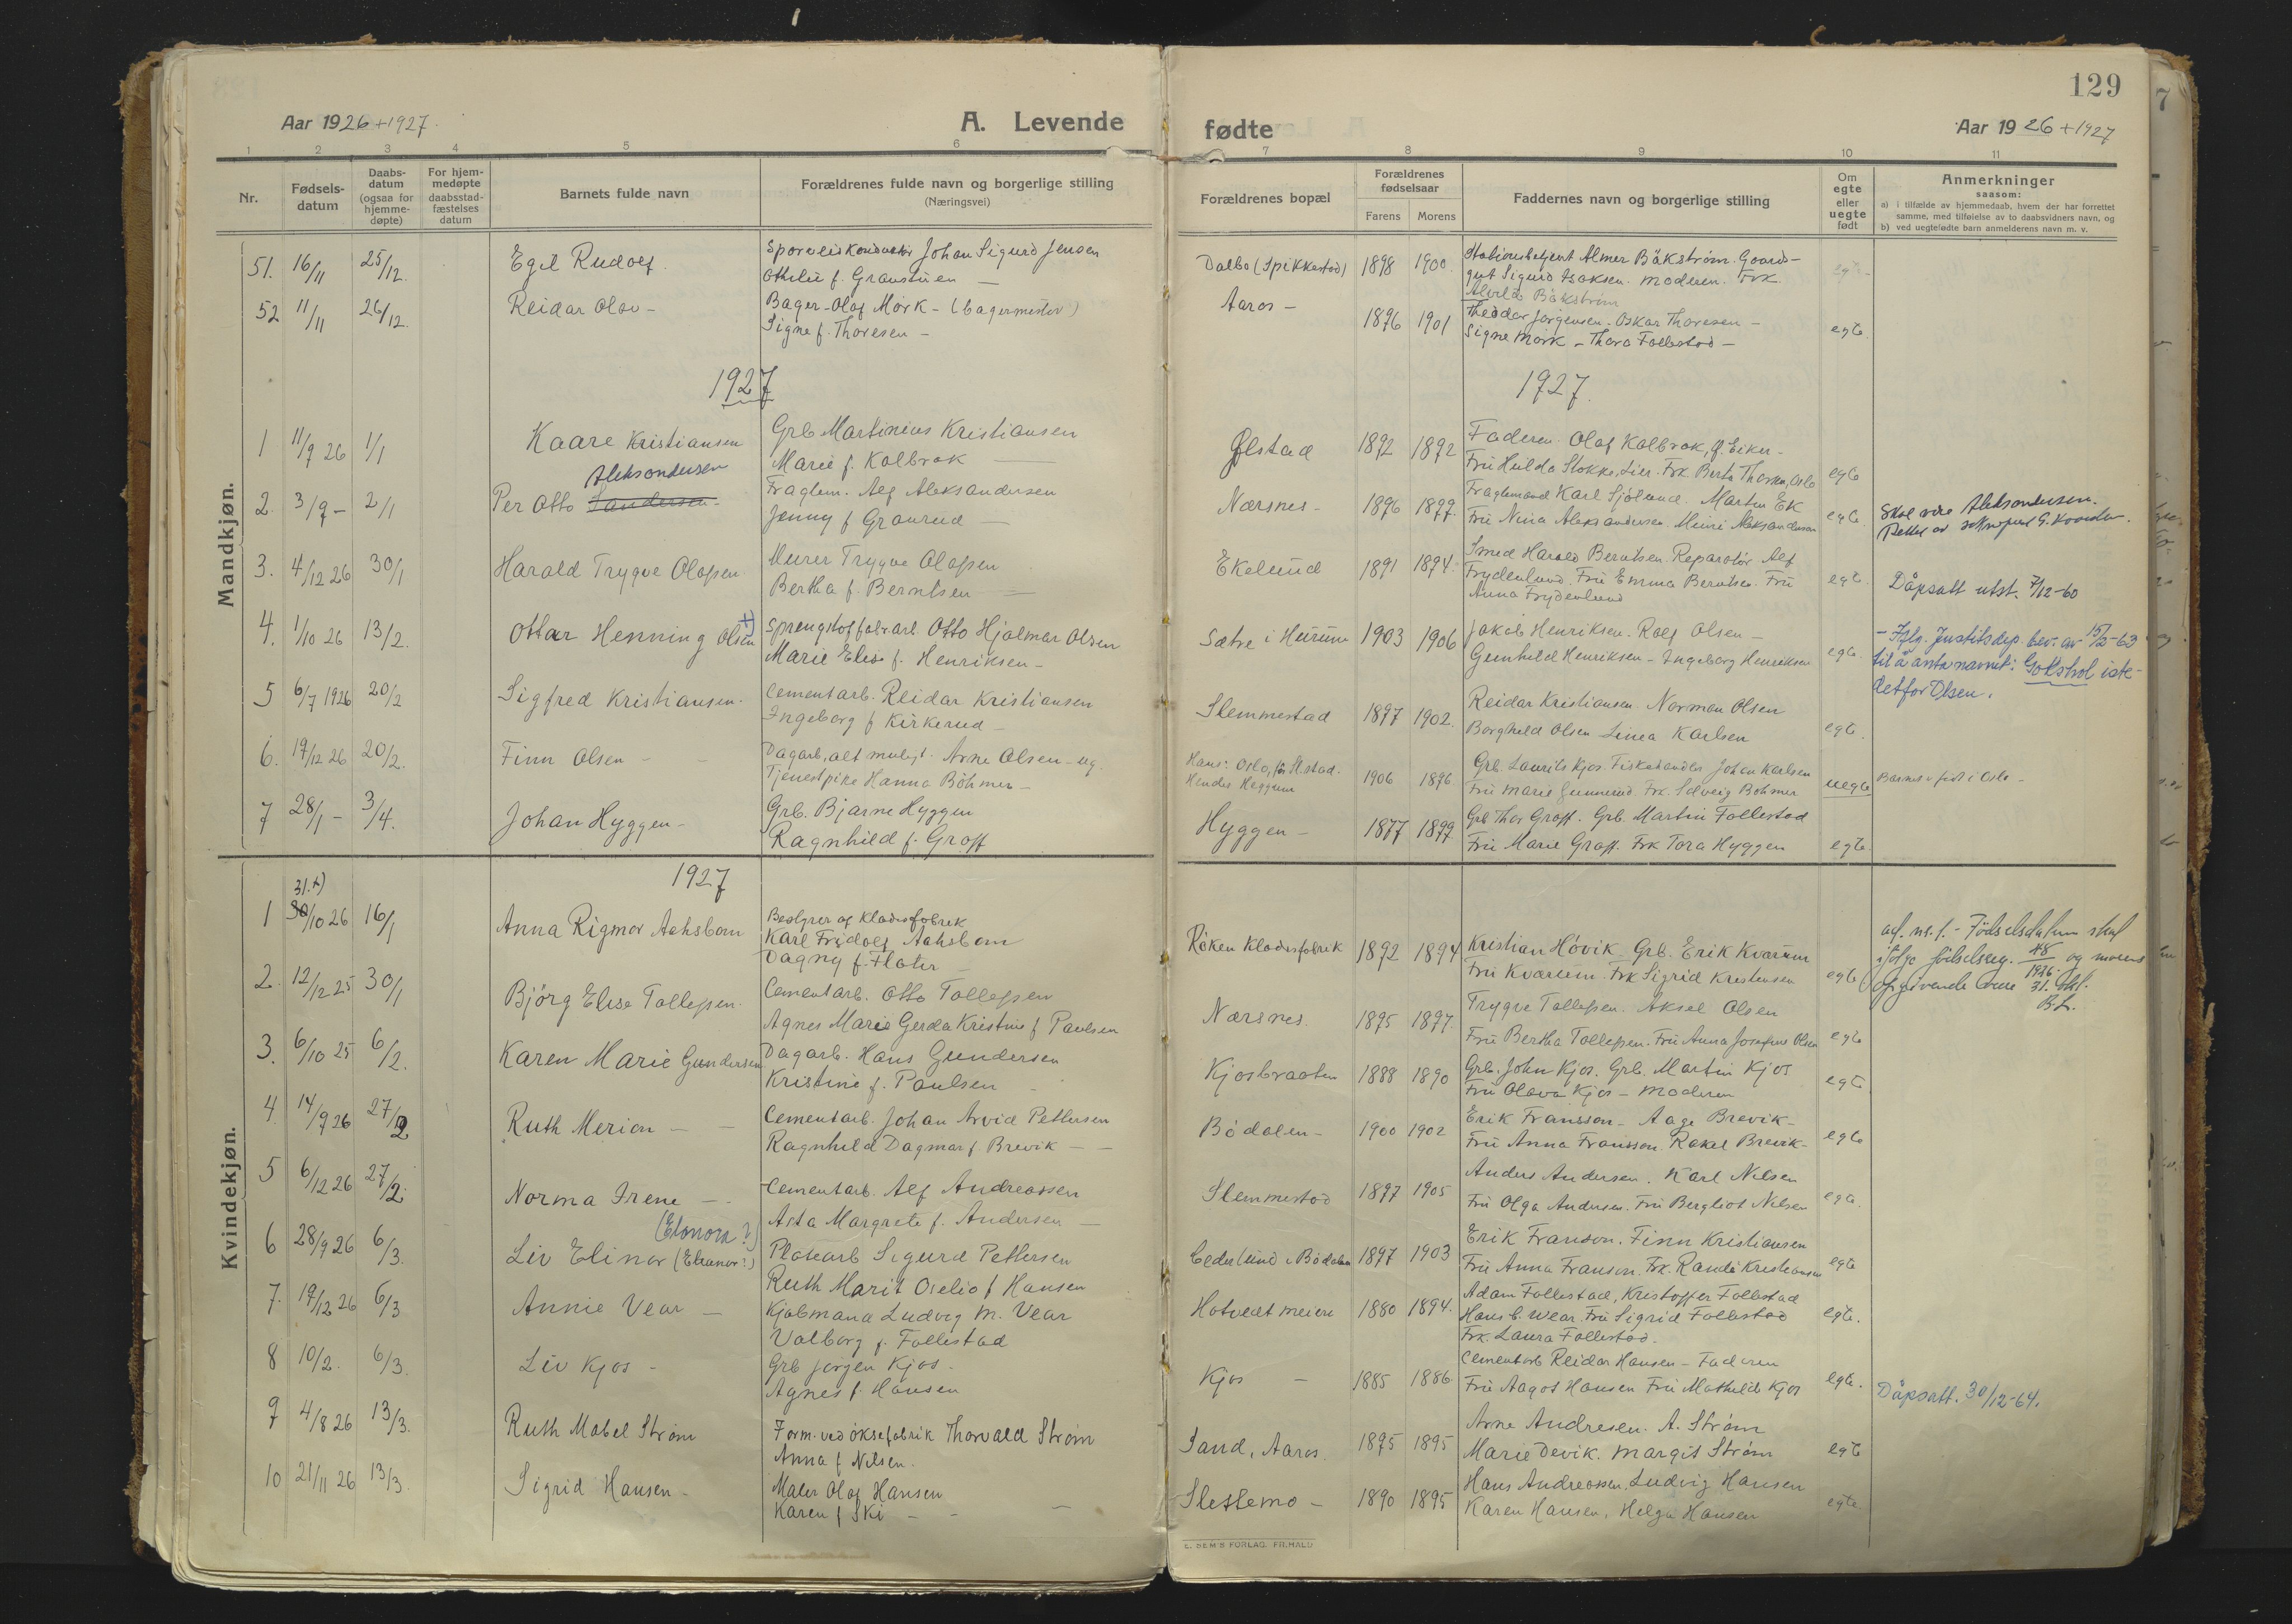 129
Aar 1926 + 1927.
A. Levende
1 2 3 4 5 6
Nr.
Fødsels-
datum
Daabs-
datum
(ogsaa for
hjemme-
døpte)
For hjem-
medøpte
daabsstad-
fæstelses
datum
Barnets fulde navn
Forældrenes fulde navn og borgerlige stilling
(Næringsvei)
Mandkjøn.
51. 16/11 25/12. Egil Rudolf. Johan Sigurd Jensen
Othilie f. Granstuen —
52 11/11 26/12. Reidar Olav - Bager - Olaf Mørk - (bagermester)
Signe f. Thoresen -
1927
1 11/9 26 1/1 Kaare Kristiansen Grb Martinius Kristiansen
Marie f. Kolbrok —
Aleksandersen
2. 3/9 - 2/1 Per Otto Sandersen - Fraglem. Alf Aleksandersen
Jenny f Graurud —
3. 4/12 26 30/1 Harald Trygve Olafsen Murer Trygve Olafsen
Bertha f. Berntsen —
4. 1/10 26 13/2. Ottar Henning Olsen +) Sprengstoffabr.arb. Otto Hjalmar Olsen
Marie Elise f. Henriksen -
5 6/7 1926 20/2 Sigfred Kristiansen. Cementarb. Reidar Kristiansen
Ingeborg f Kirkerud -
6. 19/12 26 20/2. Finn Olsen - - Dagarb, alt mulig. Arne Olsen - ug.
Tjenestpike Hanna Böhmer -
7 28/1 - 3/4. Johan Hyggen - Grb. Bjarne Hyggen
Ragnhild f. Groff
Kvindekjøn.
1927
31. +)
1 30/10 26 16/1 Anna Rigmor Aahsbom Bestyrer af Kladesfabrik
Karl Fridolf Aahsbom
Dagny f. Flater
2. 12/12 25 30/1 Björg Elise Tollefsen. Cementarb. Otto Tollefsen
Agnes Marie Gerda Kristine f Paulsen
3. 6/10 25 6/2. Karen Marie Gundersen Dagarb. Hans Gundersen
Kristine f. Paulsen -
4 14/9 26 27/2 Ruth Merion - - Cementarb. Johan Arvid Pettersen
Ragnhild Dagmar f Brevik - -
5 6/12 26 27/2. Norma Irene - - Cementarb. Alf Andreassen
Asta Margrete f. Andersen -
(Elonora ?)
6 28/9 26 6/3. Liv Elinor (Eleanor?) Sigurd Pettersen
Ruth Marit Oselio f Hansen
7. 19/12 26 6/3 Annie Vear - Kjøbmand Ludvig M. Vear
Valborg f. Follestad
8 10/2. 6/3. Liv Kjos - Grb Jørgen Kjos -
Agnes f. Hansen
9 4/8 26 13/3. Ruth Mabel Strøm Form. ved øksefabrik Thorvald Strøm
Anna f Nilsen.
10 21/11 26 13/3. Sigrid Hansen - Maler Olaf Hansen
Karen f Ski - -
fødte
Aar 1926 + 1927
7 8 9 10 11
Forældrenes bopæl
Forældrenes
fødselsaar
Farens Morens
Faddernes navn og borgerlige stilling
Om
egte
eller
uegte
født
Anmerkninger
saasom:
a) i tilfælde av hjemmedaab, hvem der har forrettet
samme, med tilføielse av to daabsvidners navn, og
b) ved uegtefødte barn anmelderens navn m. v.
Dalbo (Spikkestad) 1898 1900 Stationsbetjent Almer Bäkström. Gaards-
gut Sigurd Isaksen. Moderen. Frk. egte
Alvild Bäkström
Aaros - 1896 1901 Theodor Jørgensen - Oskar Thoresen -
Signe Mørk - Thora Follestad - egte
1927.
Ølstad 1892 1892 Faderen. Olaf Kolbrok, Ø. Eiker -
Fru Hulda Stokke, Lier. Frk. Berta Oslo egte
Nærsnes - 1896 1897. Fraglemand Karl Sjölund. Martin Ek
Fru Nina Aleksandersen. Aleksandersen egte. Skal være Aleksandersen.
Rettet av
Ekelund 1891 1894. Smed Harald Berntsen. Reparatør Alf
Frydenlund. Fru Emma Berntsen. Fru egte. Dåpsatt utst. 7/12-60
Anna Frydenlund
Sætre i Hurum 1903 1906 Jakob Henriksen. Rolf Olsen -
Gunhild Henriksen - Ingeborg Henriksen egte - Iflg. Justitsdep. bev. av 15/2-63
til å anta navnet: Gokstrol iste-
detfor Olsen.
Slemmestad 1897 1902. Reidar Kristiansen. Norman Olsen
Borghild Olsen Linea Karlsen egte.
Hans: Oslo, før Sl.stad. 1906 1896. Grb. Laurits Kjos. Fiskehandler Johan Karlsen
Hendes Heggum Fru Marie Gunnerud. Frk. Solveig Böhmer uegte Barnet er født i Oslo -
Hyggen - 1877 1899. Grb Thor Groff. Grb. Martin Follestad
Fru Marie Groff. Frk Tora Hyggen egte
Røken Kladesfabrik 1892 1894 Kristian Hövik. Grb. Erik Kvarum
Fru Kvarum. Frk Sigrid Kristensen egte
ad. nr. 1. - Fødselsdatum skal
ifølge fødselsreg. 48/1926 og morens
opgivende være 31. okt.
B.L.
Nærsnes. 1895 1897. Trygve Tollefsen. Aksel Olsen
Fru Bertha Tollefsen. Fru Anna Josefine Olsen egte
Kjosbraaten 1888 1890 Grb. John Kjos. Grb. Martin Kjos
Fru Olava Kjos - Moderen egte
Bödalen - 1900 1902 Erik Fransson - Aage Brevik -
Fru Anna Fransson. Rakel Brevik - egte
Slemmestad 1897 1905 Anders Andersen. Karl Nilsen
Fru Olga Andersen. Fru Bergliot Nilsen egte.
Cederlund i Bödalen 1897 1903 Erik Franson. Finn Kristiansen
Fru Anna Franson. Frk. Randi Kristiansen egte
Hotvedt meieri 1880 1894. Adam Follestad, Kristoffer Follestad
Hans C. Wear. Fru Sigrid Follestad egte.
Frk. Laura Follestad.
Kjos - 1885 1886. Cementarb Reidar Hansen - Faderen
Fru Aagot Hansen Fru Mathilde Kjos egte. Dåpsatt. 30/12-64.
Sand, Aaros. 1895 1895 Arne Andresen. A. Strøm
Marie Devik. Margit Strøm egte
Slettemo - 1890 1895 Hans Andreassen. Ludvig Hansen
Karen Hansen, Helga Hansen egte.
E. SEM'S FORLAG. FR.HALD